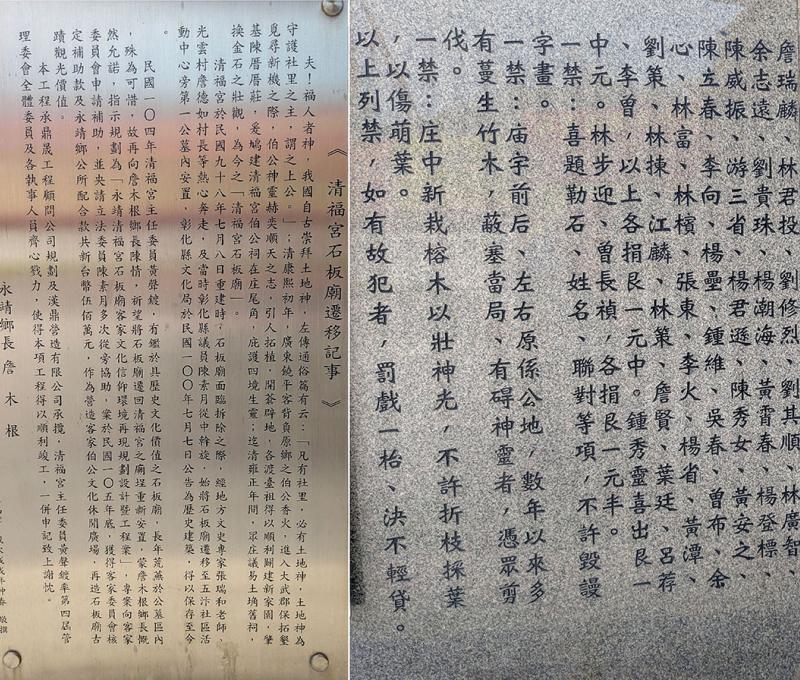 《 清福宮石板廟遷移記事 》
夫!福人者神,我國自古崇拜土地神,左傳通俗篇有云:「凡有社里,必有土地神,土地神為
守護社里之主,謂之上公。」;清康熙初年,廣東饒平客背負原鄉之伯公香火,進入大武郡保拓墾
覓尋新機之際,伯公神靈赫奕順天之志,引人拓植,開蓊辟地,各渡臺祖得以順利闢建新家園,肇
基陳厝厝莊,爰鳩建清福宮伯公祠在庄尾角,庇護四境生靈;迄清雍正年間,眾庄議易土埆舊祠,
換金石之壯觀,為今之「清福宮石板廟」。
清福宮於民國九十八年七月八日重建時,石板廟面臨拆除之際,經地方文史專家張瑞和老師,
光雲村詹德如村長等熱心奔走,及當時彰化縣議員陳素月從中斡旋,始將石板廟遷移至五汴社區活
動中心旁第一公墓內安置,彰化縣文化局於民國一〇〇年七月七日公告為歷史建築,得以保存至今
。
民國一〇四年清福宮主任委員黃聲鍍,有鑑於具歷史文化價值之石板廟,長年荒蕪於公墓區內
,殊為可惜,故再向詹木根鄉長陳情,祈望將石板廟遷回清福宮之廟埕重新安置,蒙詹木根鄉長慨
然允諾,指示規劃為「永靖清福宮石板廟客家文化信仰環境再現規劃設計暨工程案」,專案向客家
委員會申請補助,並央請立法委員陳素月多次從旁協助,案於民國一〇五年底,獲得客家委員會核
定補助款及永靖鄉公所配合款共新台幣伍佰萬元,作為營造客家伯公文化休閒廣場,再造石板廟古
蹟觀光價值。
本工程承鼎晟工程顧問公司規劃及漢鼎營造有限公司承攬,清福宮主任委員黃聲鍍率第四屆管
理委會全體委員及各執事人員齊心戮力,使得本項工程得以順利竣工,一併申記致上謝忱。
永靖鄉長 詹 木 根
詹瑞麟、林君投、劉修烈、劉其順、林廣智、
余志遠、劉貴珠、楊潮海、黃霄春、楊登標、
陳威振、游三省、楊君遜、陳秀女、黃安之、
陳立春、李向、楊壘、鍾維、吳春、曾布、余
心、林富、林檳、張東、李火、楊省、黃潭、
劉策、林揀、江麟、林策、詹賢、葉廷、呂荐
、李曾,以上各捐艮一元中。鍾秀靈喜出艮一
中元。林步迎、曾長禎,各捐艮一元半。
一禁:喜題勒石、姓名、聯對等項,不許毀謾
字畫。
一禁:庙宇前后、左右原係公地,數年以來多
有蔓生竹木,蔽塞當局、有碍神靈者,憑眾剪
伐。
一禁:庄中新栽榕木以壯神光,不許折枝採葉
,以傷萌葉。
以上列禁,如有故犯者,罰戲一枱、決不輕貸。